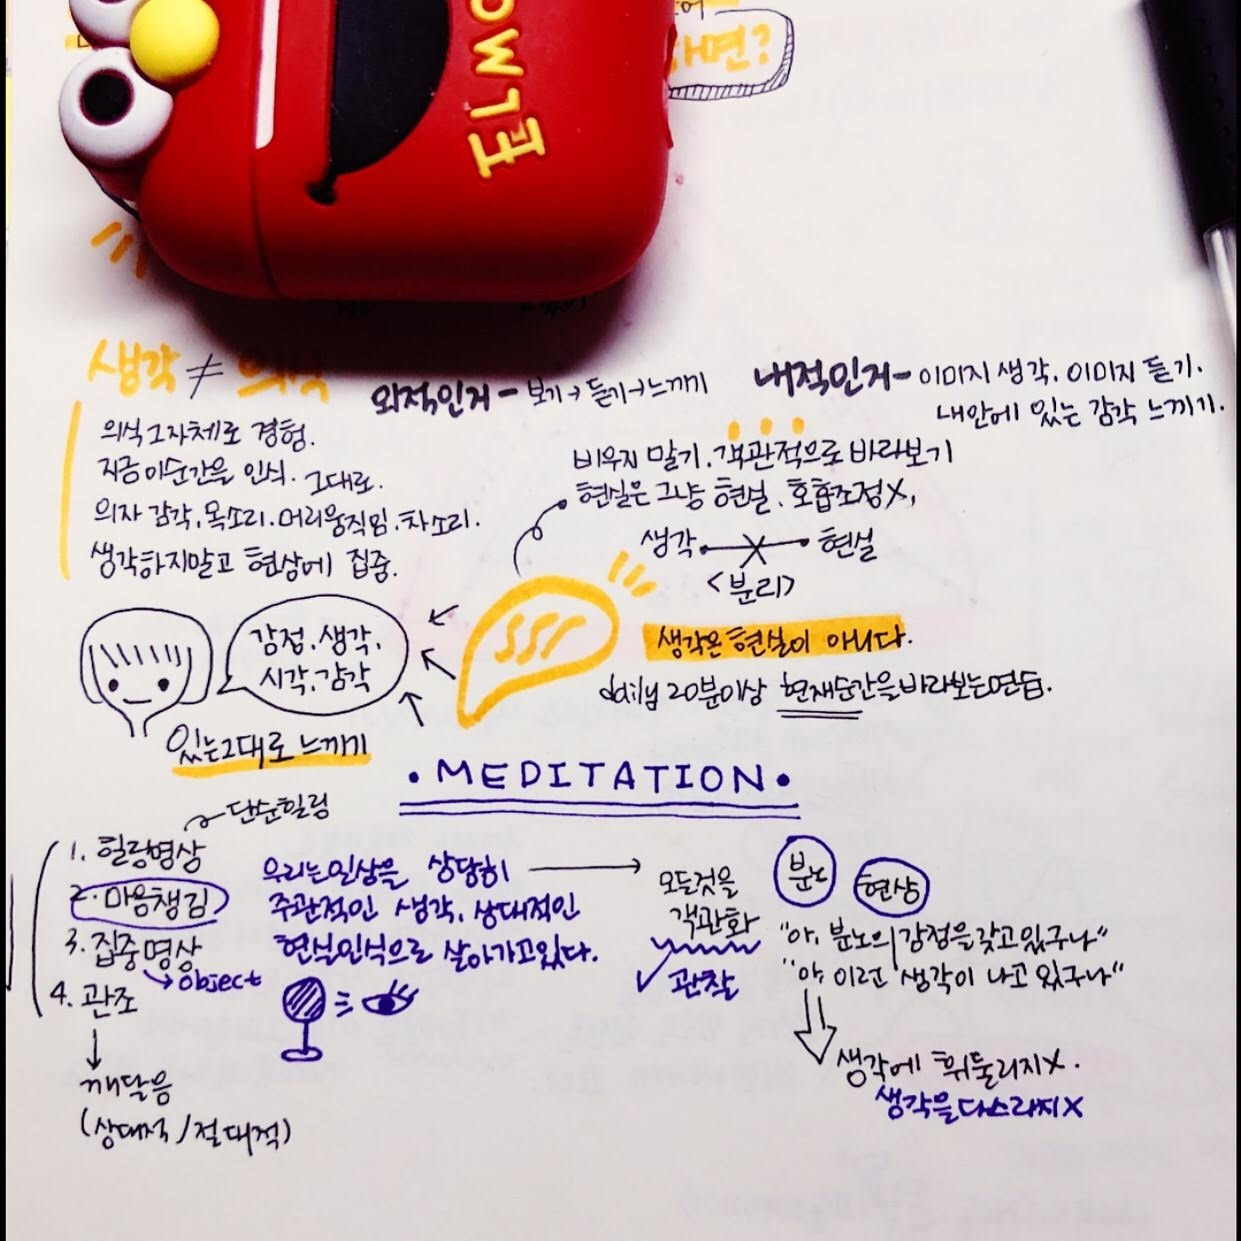 ELMO
하면?
생각 ≠ 의식
의식 그자체로 경험.
지금 이순간을 인식. 그대로.
의자 감각. 목소리. 머리움직임. 차소리.
생각하지말고 현상에 집중.
외적인거 - 보기→듣기→느끼기
내적인거 - 이미지 생각. 이미지 듣기.
내안에 있는 감각 느끼기.
비우지 말기. 객관적으로 바라보기
현실은 그냥 현실. 호흡조정X,
생각 X 현실
<분리>
생각은 현실이 아니다.
daily 20분이상 현재순간을바라보는연습.
감정. 생각,
시각. 감각
있는그대로 느끼기
• MEDITATION •
단순힐링
1. 힐링명상
2. 마음챙김
3. 집중명상
→ object
4. 관조
↓
깨달음
(상대적 / 절대적)
우리는 인상을 상당히
주관적인 생각. 상대적인
현식인식으로 살아가고있다.
모든것을
객관화
관찰
분노
현상
"아, 분노의 감정을 갖고있구나"
"아, 이런 생각이 나고 있구나"
생각에 휘둘리지X.
생각을다스리지X